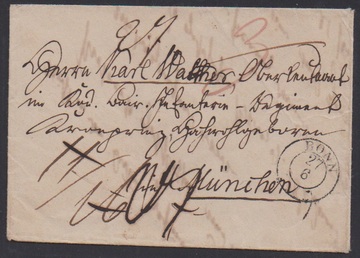 Herrn Karl Walther Oberleutnant
im Kög. Bair. Infanterie-Regiment
Kronprinz Hochwohlgeboren
München
BONN
27
6